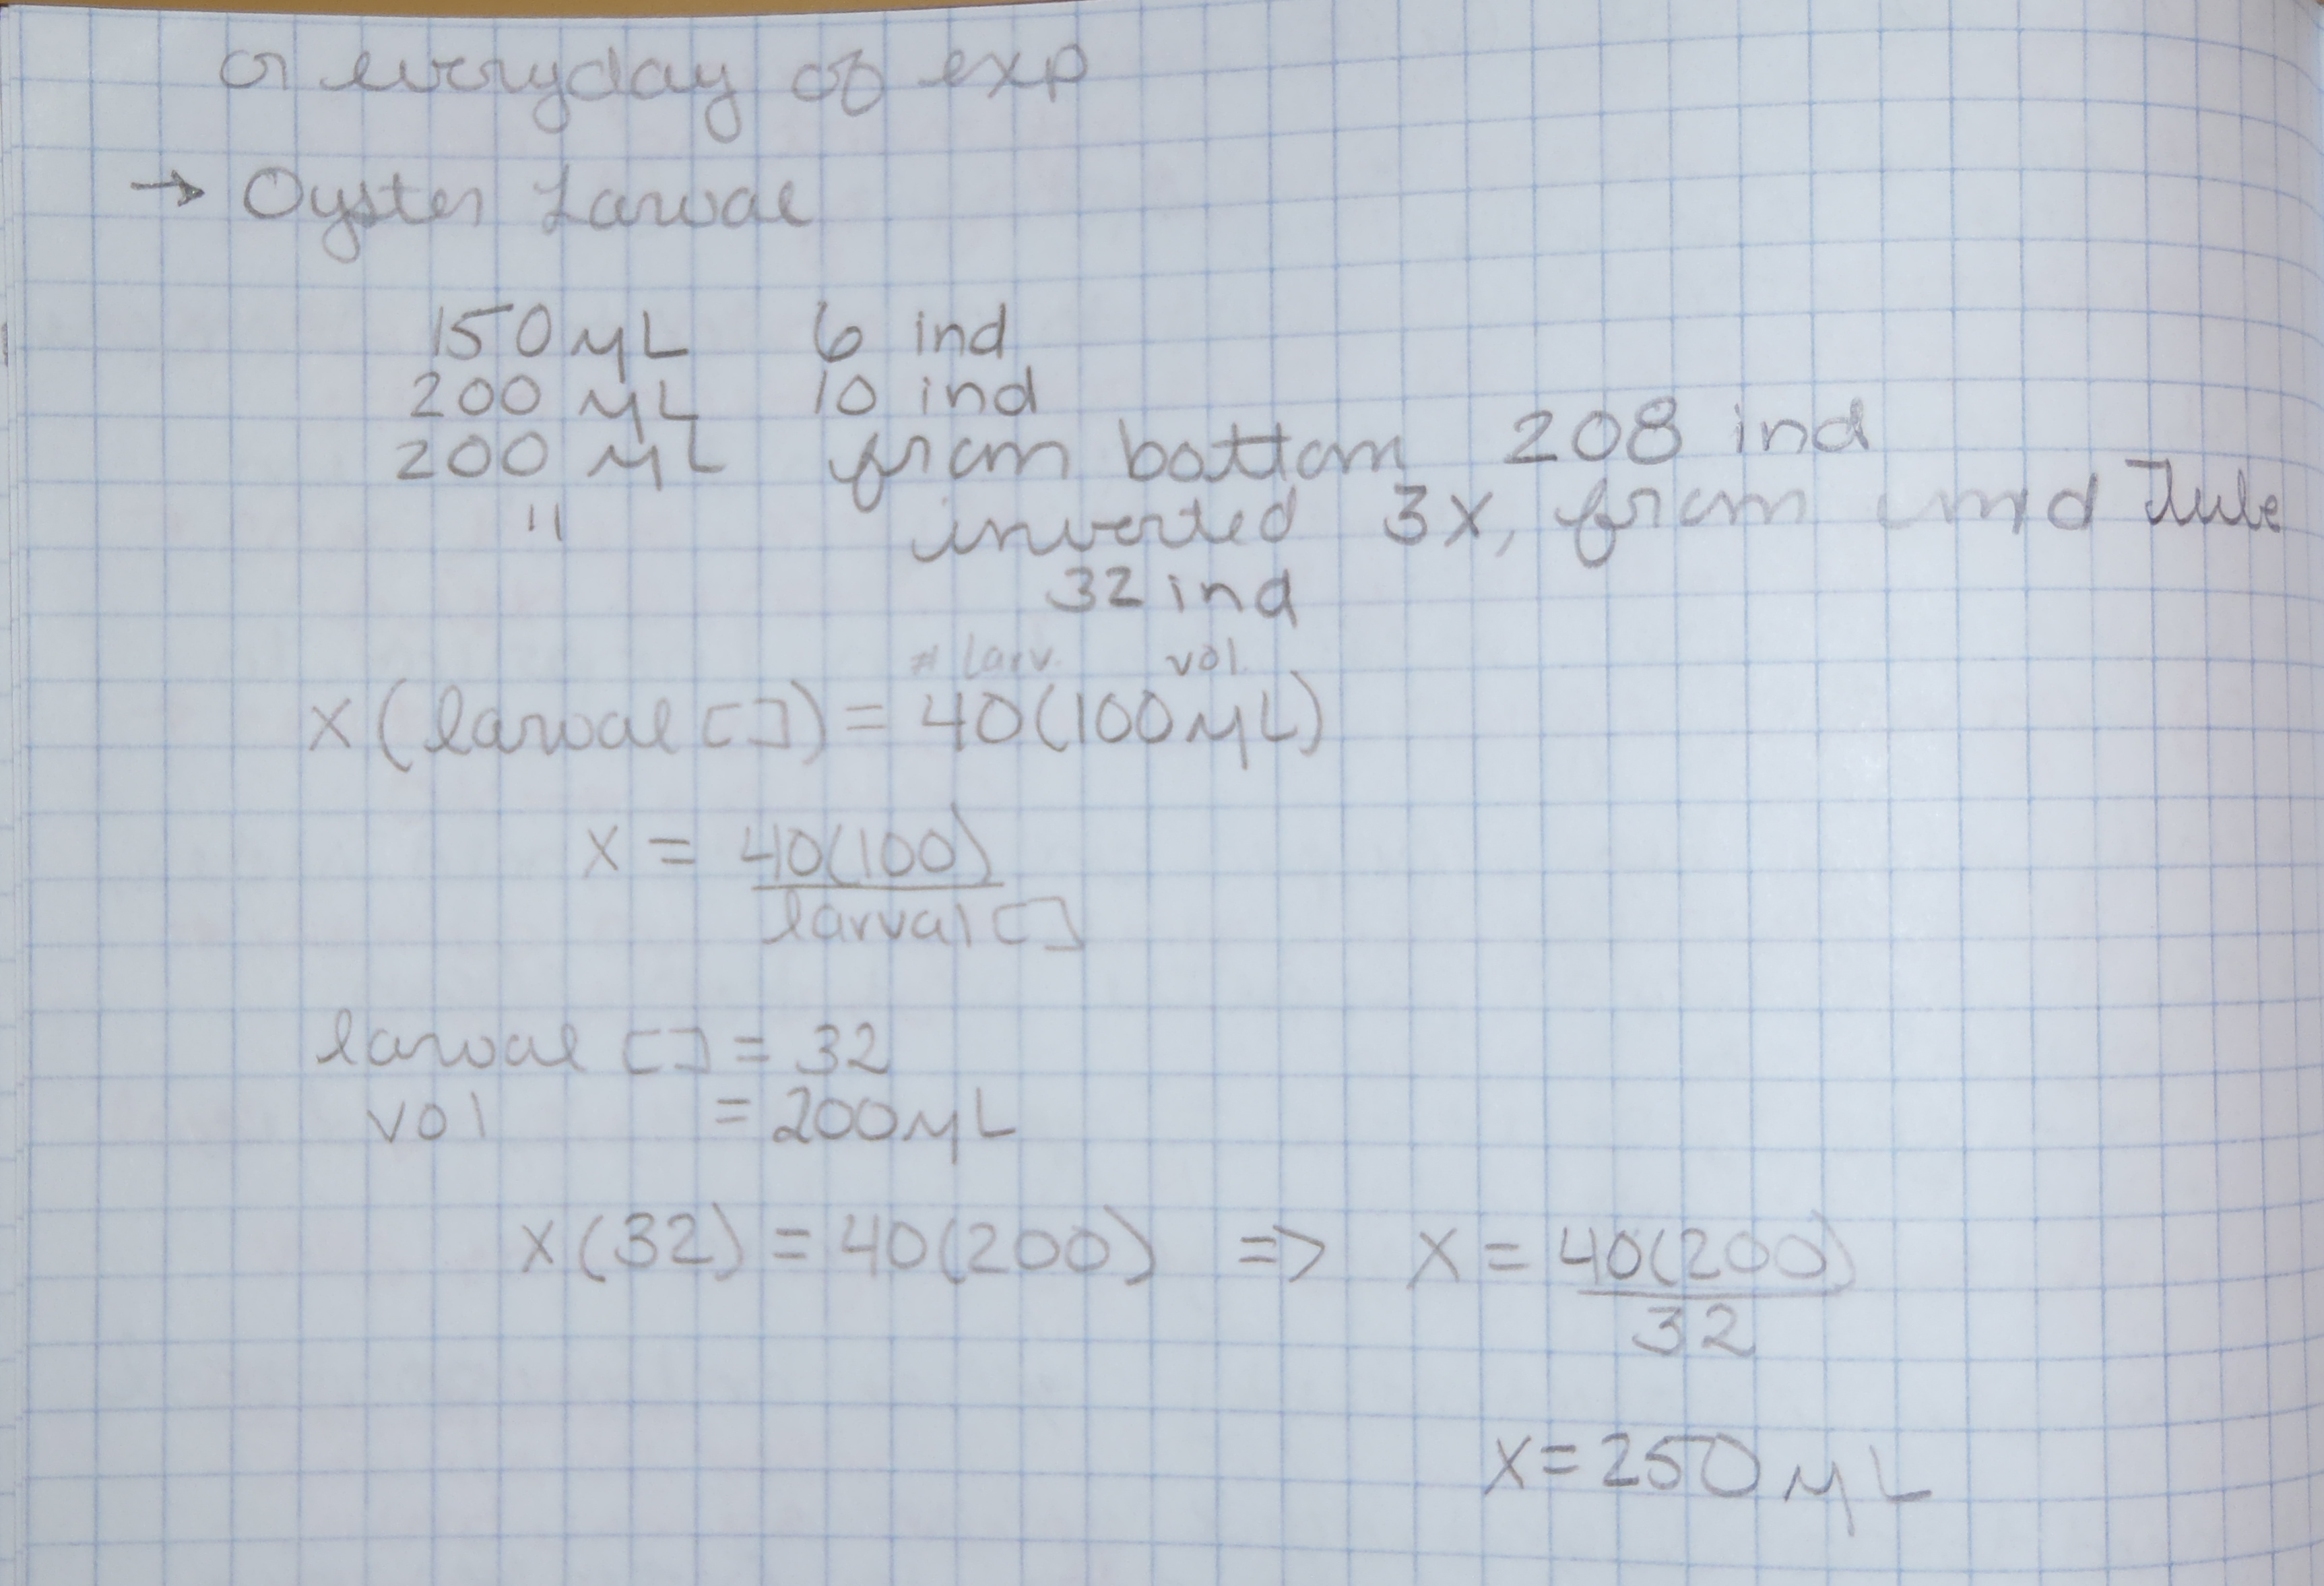 or everyday of exp
→ Oyster Larvae
150 μL 6 ind
200 μL 10 ind
200 μL from bottom 208 ind
" inverted 3x, from mid Tube
32 ind
# larv. vol.
x (larvae []) = 40(100 μL)
x = 40(100)
larval []
larvae [] = 32
vol = 200 μL
x(32) = 40(200) => x = 40(200)
32
x = 250 μL